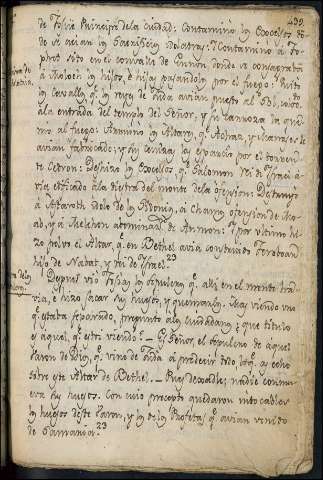 439.
de Josue Principe de la ciudad: Contamino los Excelsos don
de se acian los Sacrificios de los Sacerdotes: Contamino a To-
phet sito en el convalle de Ennon donde se consagraba
a Moloch los hijos, e hijas pasandolos por el fuego: Quito
los Cavallos q. los reyes de Juda avian puesto al Sol, junto
a la entrada del templo del Señor, y su carroza la que-
mo al fuego: Arruino los Altares q. Achaz, y Manasses
avian fabricado; y sus cenizas las esparcio por el torrente
Cedron: Deshizo los Excelsos q. Salomon rei de Israel a-
via edificado a la diestra del monte de la ofension: Destruyo
a Astaroth idolo de los Sidonios, a Chamos ofension de Mo-
ab, y a Melchon abominaz.n de Ammon: Y por ultimo hi-
zo polvo el Altar, q. en Bethel avia construido Jeroboan
hijo de Nabat, y rei de Israel. 23
Despues vio Josias los sepulcros q. alli en el monte
avia, e hizo sacar los huesos, y quemarlos. Mas viendo uno
q. estaba separado, pregunto a los ciudadanos; que titulo
es aquel, q. estoi viendo? — Es Señor, el sepulcro de aquel
Varon de Dios, q. vino de Juda a predecir todo lo q. as echo
sobre este Altar de Bethel. — Pues dexadle; nadie conmu-
eva sus huesos. Con cuio precepto quedaron intocables
los huesos deste Varon, y los de los Profetas q. avian venido
de Samaria. 23